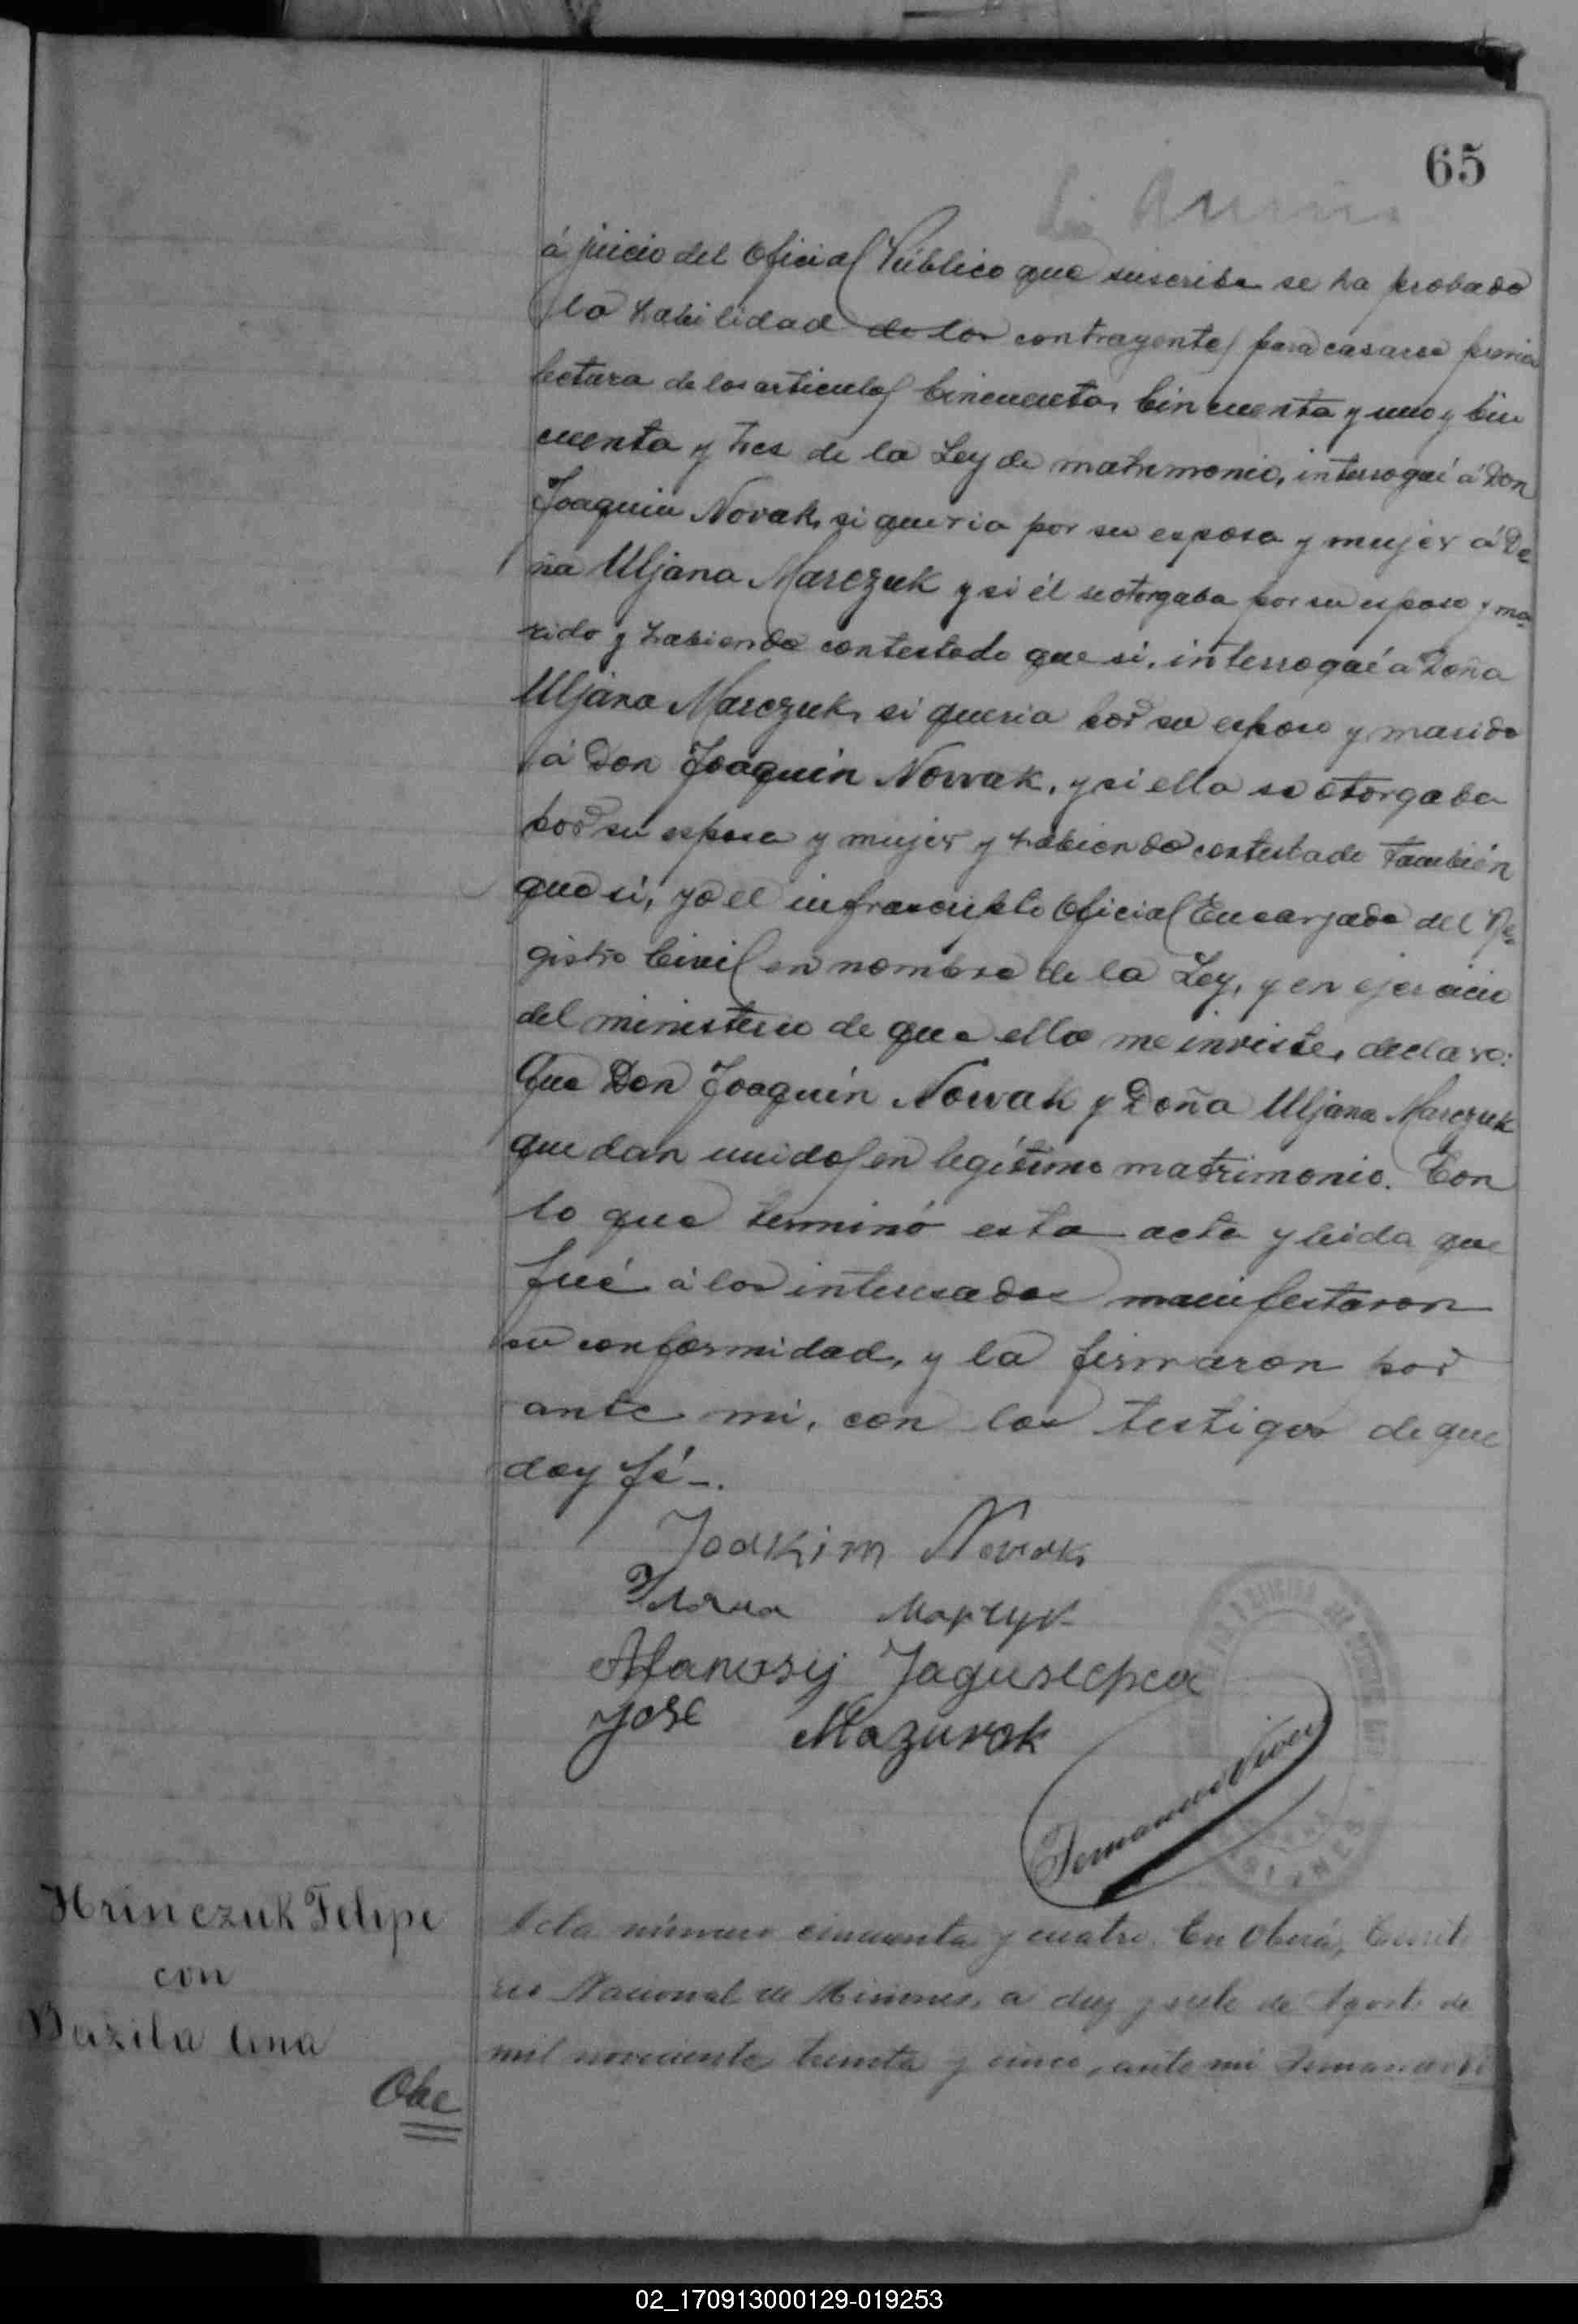 65
á juicio del Oficial Público que suscribe se ha probado
la habilidad de los contrayentes para casarse previa
lectura de los articulos Cincuenta, Cincuenta y uno y Cin
cuenta y tres de la Ley de matrimonio, interrogué á Don
Joaquin Novak, si queria por su esposa y mujer á Do-
ña Uljana Marczuk y si él se otorgaba por su esposo y ma-
rido y habiendo contestado que si, interrogué a Doña
Uljana Marczuk, si queria por su esposo y marido
á Don Joaquin Nowak, y si ella se otorgaba
por su esposa y mujer y habiendo contestado también
que si, yo el infrascripto Oficial Encargado del Re-
gistro Civil en nombre de la Ley, y en ejercicio
del ministerio de que ella me inviste, declaro:
Que Don Joaquín Nowak y Doña Uljana Marczuk
quedan unidos en legítimo matrimonio. Con
lo que terminó esta acta y leida que
fué á los interesados manifestaron
su conformidad, y la firmaron por
ante mi, con los testigos de que
doy fé-.
Joakim Novak
Марчук
Afanasij
José Mazurok
Hrinczuk Felipe
con
Bazila Ana
Acta número cincuenta y cuatro. En Oberá, Territo
rio Nacional de Misiones, a diez y siete de Agosto de
mil novecientos treinta y cinco, ante mi
02_170913000129-019253